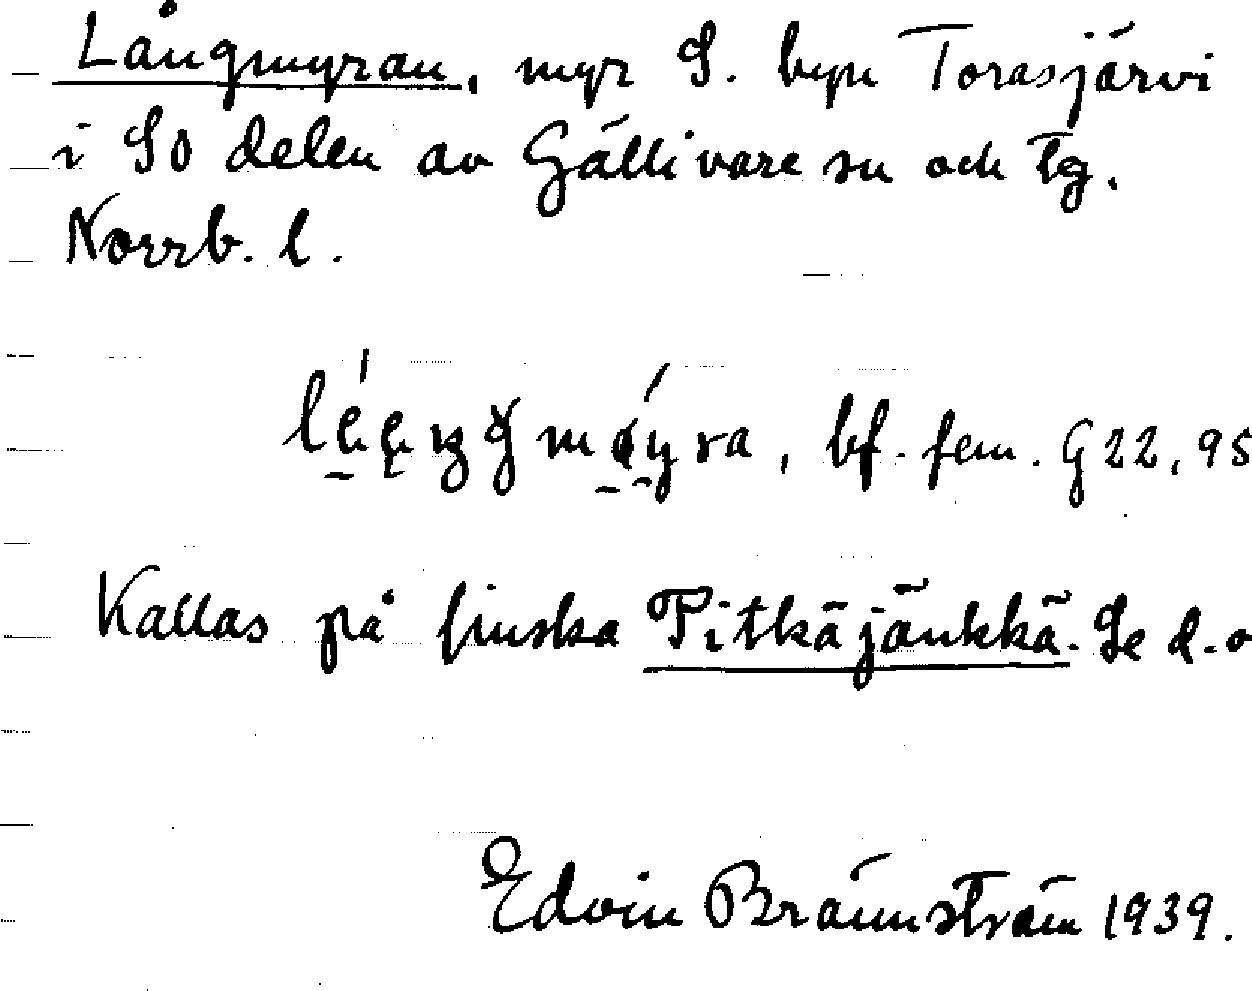 Långmyran, myr S. byn Torasjärvi
i SO delen av Gällivare sn och tg.
Norrb. l.
bf. fem. G 22, 95
Kallas på finska Pitkäjänkkä. Se d. o
Edvin Brännström 1939.